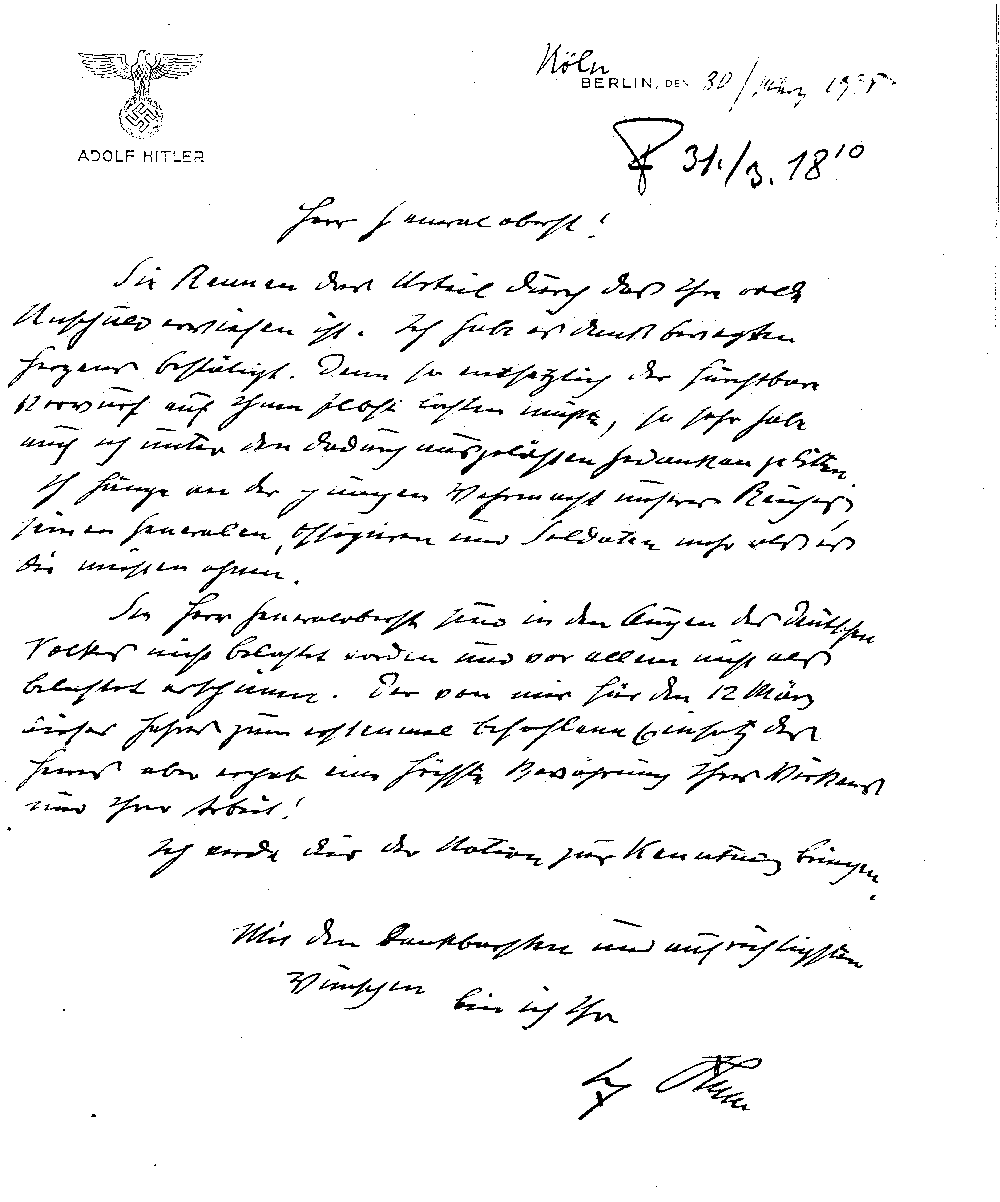 Köln
BERLIN, DEN 30/März 1938
ADOLF HITLER
31./3. 18¹⁰
Herr Generaloberst!
Sie kennen das Urteil durch das Ihre volle
Unschuld erwiesen ist. Ich habe es dank bewegten
Herzens bestätigt. Denn so entsetzlich der furchtbare
Verdacht auf Ihnen selbst lasten mußte, so sehr habe
auch ich unter den dadurch ausgelösten Gedanken gelitten.
Ich hänge an der jungen Wehrmacht unseres Reiches,
seinen Generalen, Offizieren und Soldaten mehr als es
die meisten ahnen.
Sie Herr Generaloberst sind in den Augen des Deutschen
Volkes nicht belastet worden und vor allem nicht als
belastet erschienen. Der von mir für den 12 März
dieses Jahres zum erstenmal befohlene Einsatz des
Heeres aber ergab eine höchste Bewährung Ihres Wirkens
und Ihrer Arbeit!
Ich werde dies der Nation zur Kenntnis bringen.
Mit den dankbarsten und aufrichtigsten
Wünschen
bin ich Ihr